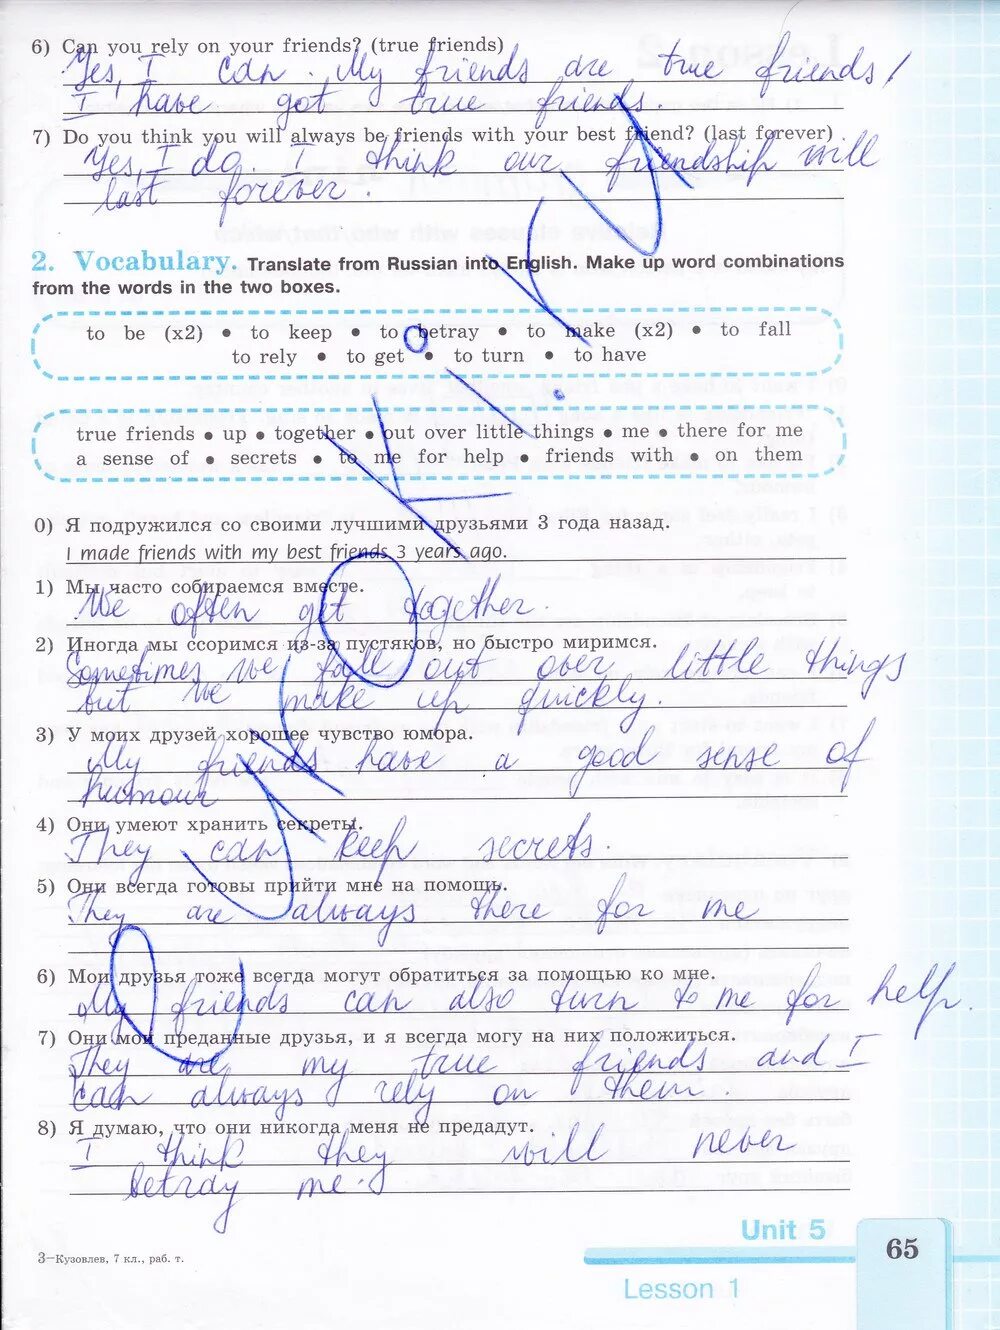 6) Can you rely on your friends? (true friends)
Yes, I can. My friends are true friends /
I have got true friends.
7) Do you think you will always be friends with your best friend? (last forever)
Yes, I do. I think our friendship will
last forever.
2. Vocabulary. Translate from Russian into English. Make up word combinations
from the words in the two boxes.
to be (x2) • to keep • to betray • to make (x2) • to fall
to rely • to get • to turn • to have
true friends • up • together • out over little things • me • there for me
a sense of • secrets • to me for help • friends with • on them
0) Я подружился со своими лучшими друзьями 3 года назад.
I made friends with my best friends 3 years ago.
1) Мы часто собираемся вместе.
We often get together.
2) Иногда мы ссоримся из-за пустяков, но быстро миримся.
Sometimes we fall out over little things
but we make up quickly.
3) У моих друзей хорошее чувство юмора.
My friends have a good sense of
humour
4) Они умеют хранить секреты.
They can keep secrets.
5) Они всегда готовы прийти мне на помощь.
They are always there for me
6) Мои друзья тоже всегда могут обратиться за помощью ко мне.
My friends can also turn to me for help.
7) Они мои преданные друзья, и я всегда могу на них положиться.
They are my true friends and I
can always rely on them.
8) Я думаю, что они никогда меня не предадут.
I think they will never
betray me.
Unit 5
3–Кузовлев, 7 кл., раб. т.
65
Lesson 1